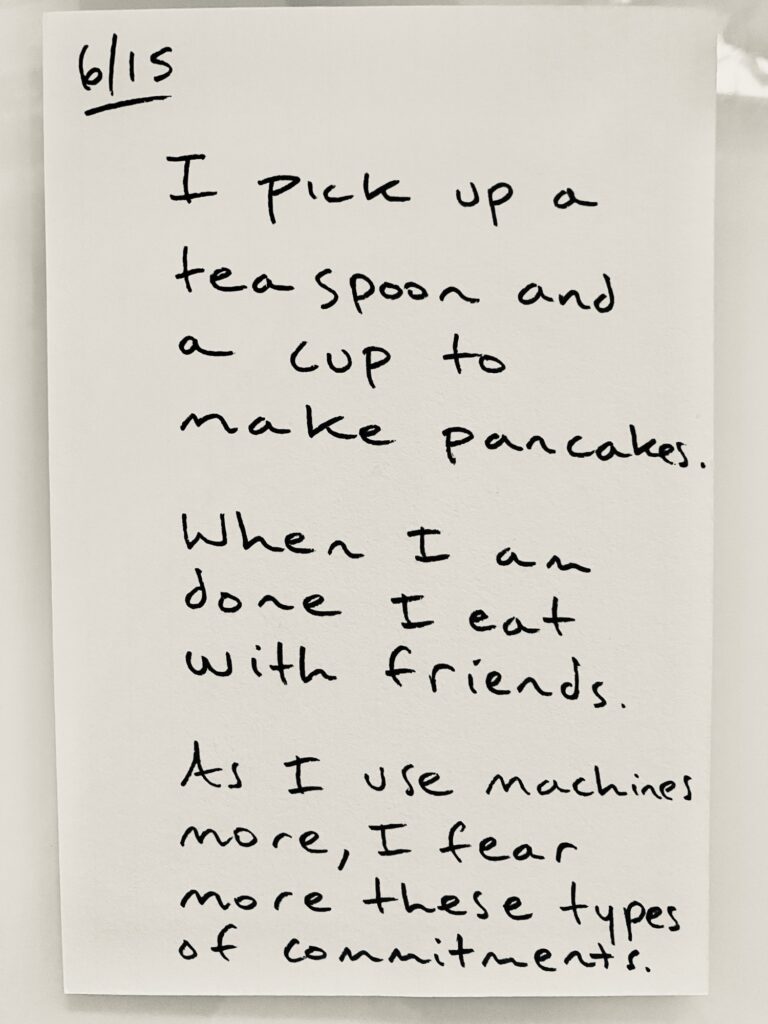 6/15
I pick up a
teaspoon and
a cup to
make pancakes.
When I am
done I eat
with friends.
As I use machines
more, I fear
more these types
of commitments.